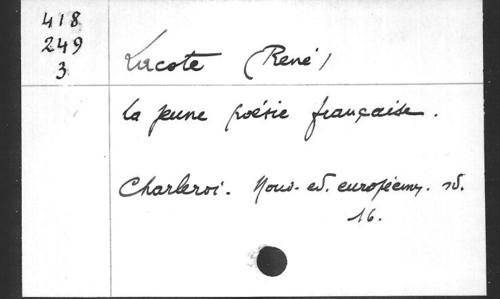 418
249
3
Lacote (René)
la jeune poésie française.
Charleroi. Nouv. ed. européenn. sd.
16.